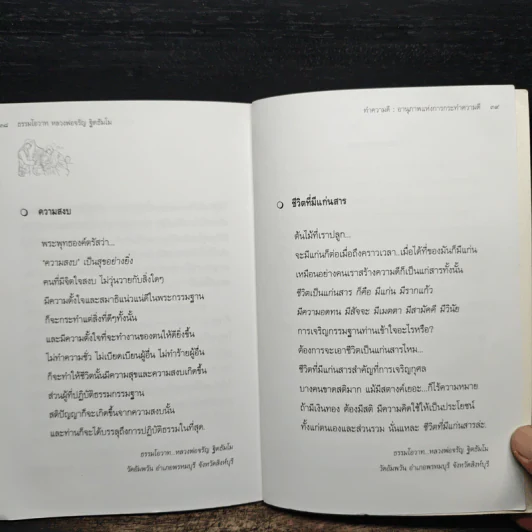 ๓๘ ธรรมโอวาท หลวงพ่อจรัญ ฐิตธัมโม
ความสงบ
พระพุทธองค์ตรัสว่า...
"ความสงบ" เป็นสุขอย่างยิ่ง
คนที่มีจิตใจสงบ ไม่วุ่นวายกับสิ่งใดๆ
มีความตั้งใจและสมาธิแน่วแน่ในพระกรรมฐาน
ก็จะกระทำแต่สิ่งที่ดีๆทั้งนั้น
และมีความตั้งใจที่จะทำงานของตนให้ดียิ่งขึ้น
ไม่ทำความชั่ว ไม่เบียดเบียนผู้อื่น ไม่ทำร้ายผู้อื่น
ก็จะทำให้ชีวิตนั้นมีความสุขและความสงบเกิดขึ้น
ส่วนผู้ที่ปฏิบัติธรรมกรรมฐาน
สติปัญญาก็จะเกิดขึ้นจากความสงบนั้น
และท่านก็จะได้บรรลุถึงการปฏิบัติธรรมในที่สุด.
ธรรมโอวาท..หลวงพ่อจรัญ ฐิตธัมโม
วัดอัมพวัน อำเภอพรหมบุรี จังหวัดสิงห์บุรี
ทำความดี : อานุภาพแห่งการกระทำความดี ๓๙
ชีวิตที่มีแก่นสาร
ต้นไม้ที่เราปลูก...
จะมีแก่นก็ต่อเมื่อถึงคราวเวลา..เมื่อได้ที่ของมันก็มีแก่น
เหมือนอย่างคนเราสร้างความดีก็เป็นแก่นสารทั้งนั้น
ชีวิตเป็นแก่นสาร ก็คือ มีแก่น มีรากแก้ว
มีความอดทน มีสัจจะ มีเมตตา มีสามัคคี มีวินัย
การเจริญกรรมฐานท่านเข้าใจอะไรหรือ?
ต้องการจะเอาชีวิตเป็นแก่นสารไหม...
ชีวิตที่มีแก่นสารสำคัญที่การเจริญกุศล
บางคนขาดสติมาก แม้มีสตางค์เยอะ...ก็ไร้ความหมาย
ถ้ามีเงินทอง ต้องมีสติ มีความคิดใช้ให้เป็นประโยชน์
ทั้งแก่ตนเองและส่วนรวม นั่นแหละ ชีวิตที่มีแก่นสารล่ะ.
ธรรมโอวาท..หลวงพ่อจรัญ ฐิตธัมโม
วัดอัมพวัน อำเภอพรหมบุรี จังหวัดสิงห์บุรี